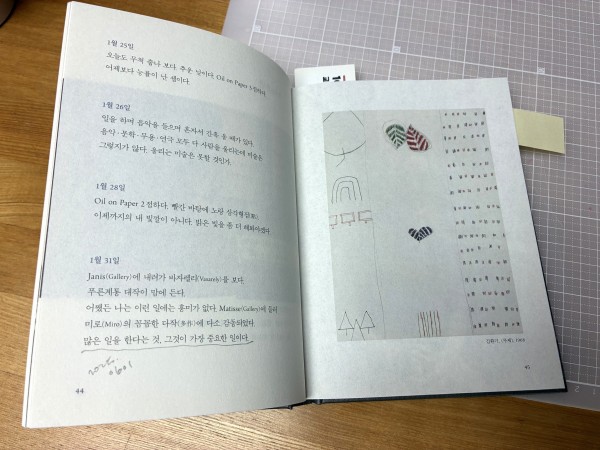 1월 25일
오늘도 무척 춥나 보다. 추운 날이다. Oil on Paper
어제보다 능률이 난 셈이다.
1월 26일
일을 하며 음악을 들으며 혼자서 간혹 울 때가 있다.
음악·문학·무용·연극 모두 다 사람을 울리는데 미술은
그렇지가 않다. 울리는 미술은 못할 것인가.
1월 28일
Oil on Paper 2점하다. 빨간 바탕에 노랑 삼각형
이제까지의 내 빛깔이 아니다. 밝은 빛을 좀 더 해봐야겠다.
1월 31일
Janis(Gallery)에 내려가 바자렐리(Vasarely)를 보다.
푸른계통 대작이 맘에 든다.
어쨌든 나는 이런 일에는 흥미가 없다. Matisse(Gallery)에 들러
미로(Miro)의 꼼꼼한 다작(多作)에 다소 감동되었다.
많은 일을 한다는 것, 그것이 가장 중요한 일이다.
0601
44
45